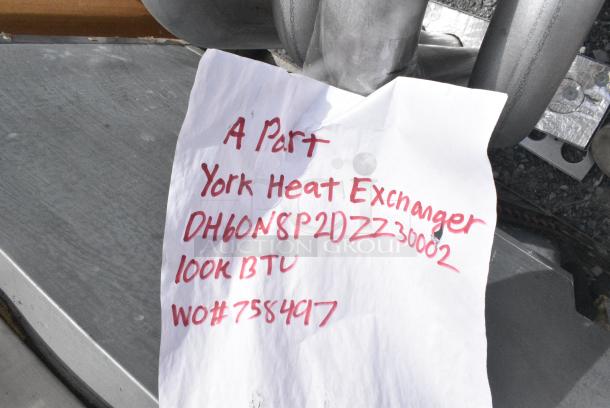 A Part
York Heat Exchanger
DH60N8P2DZZ30002
100K BTU
WO#758497
AUCTION GROUP